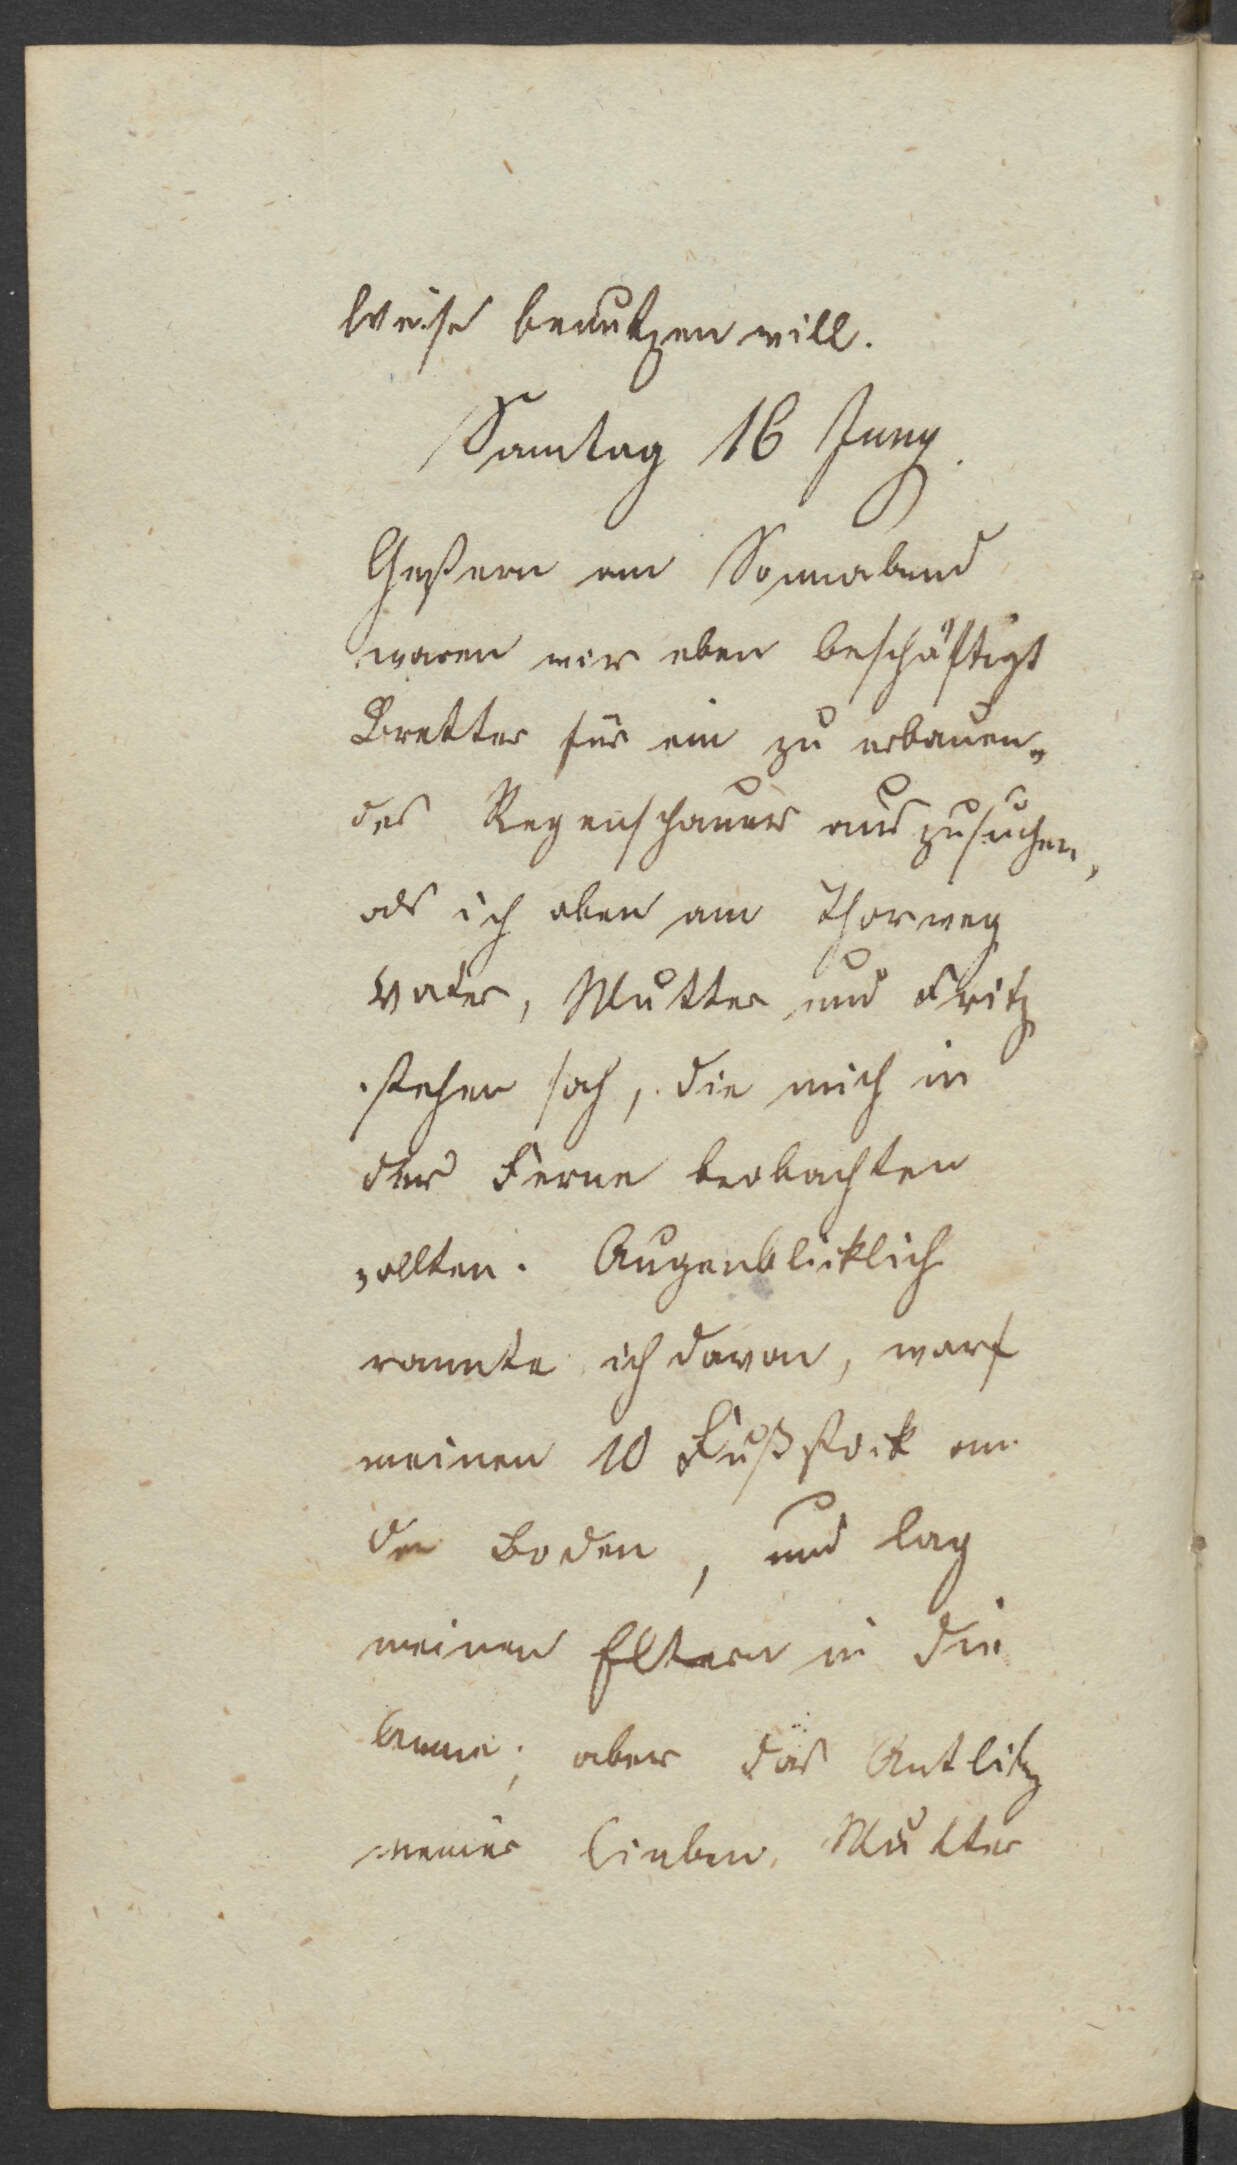 Weise benutzen will.
Sontag 16 Juny.
Gestern am Sonnabend
waren wir eben beschäftigt
Bretter für ein zu erbauen-
des Regenschauer auszusuchen,
als ich oben am Thorweg
Vater, Mutter und Fritz
stehen sah, die mich in
der Ferne beobachten
wollten. Augenblicklich
rannte ich davon, warf
meinen 10 Fußstock an
den Boden, und lag
meinen Eltern in die
Arme; aber das Antlitz
meiner lieben Mutter